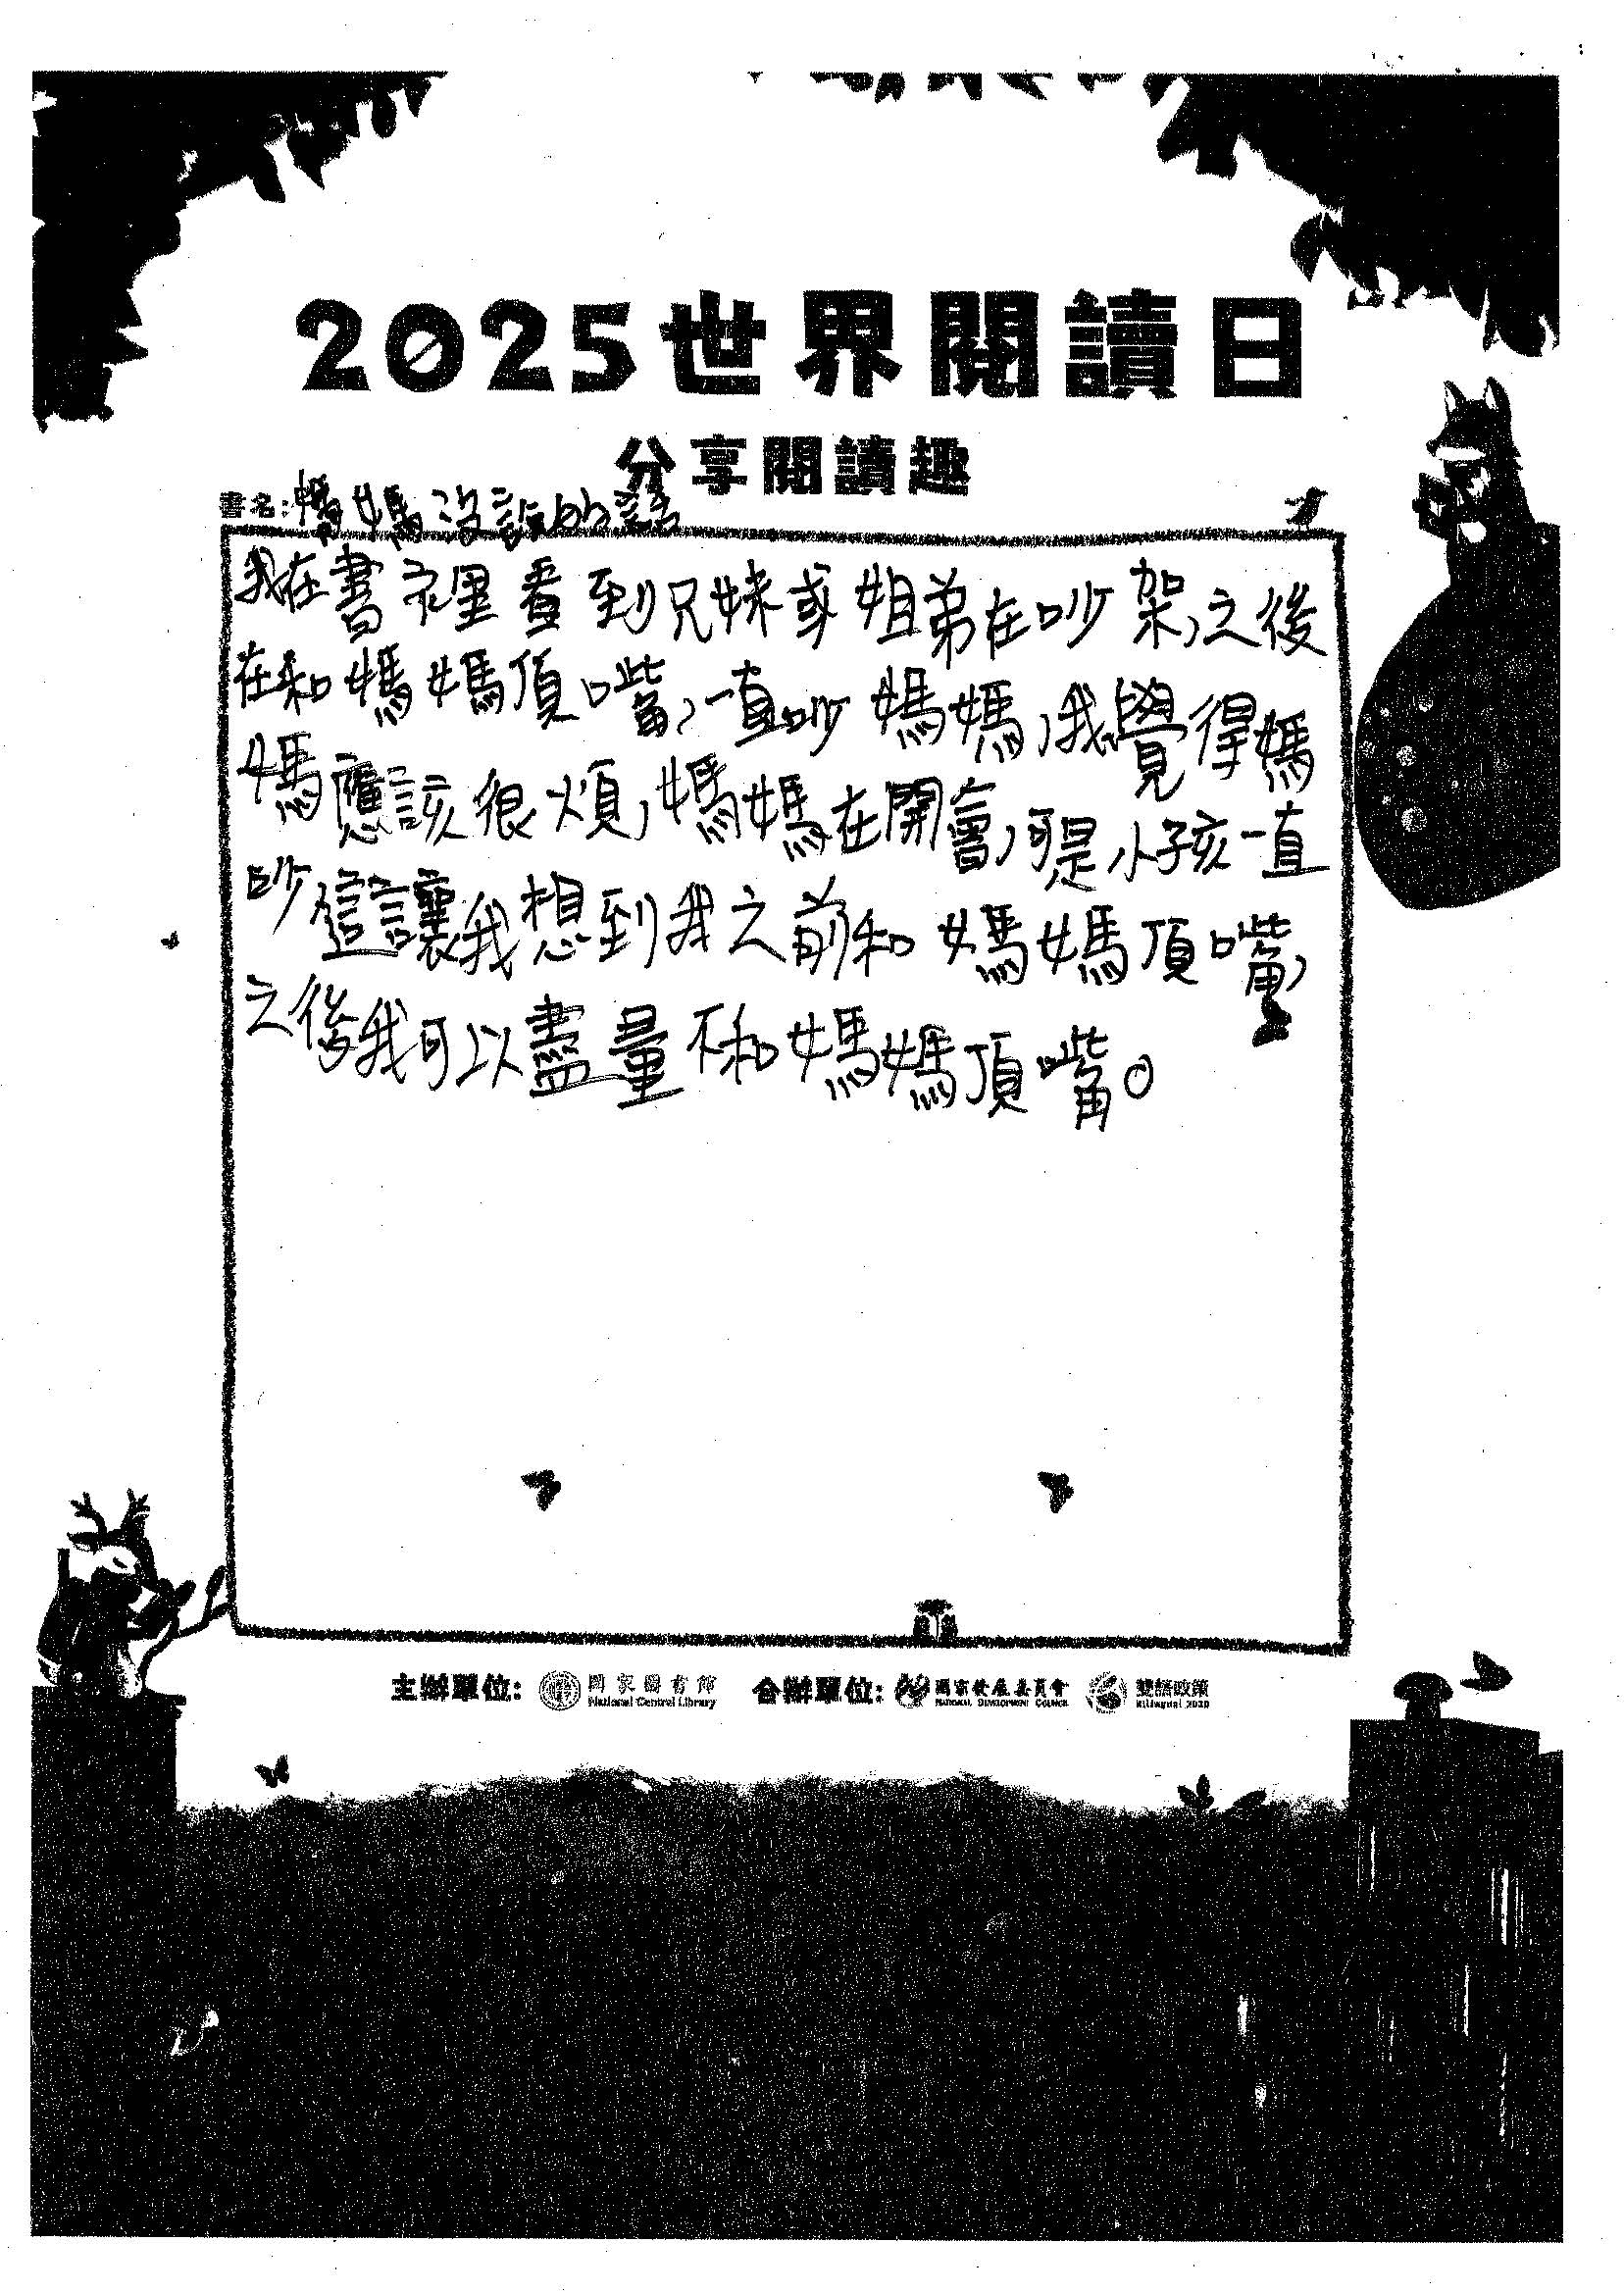 2025世界閱讀日
分享閱讀趣
書名：媽媽沒說的話
我在書裡看到兄妹或姐弟在吵架，之後
在和媽媽頂嘴，一直吵媽媽，我覺得媽
媽應該很煩，媽媽在開會，可是小孩一直
吵，這讓我想到我之前和媽媽頂嘴，
之後我可以盡量不和媽媽頂嘴。
主辦單位： 國家圖書館 合辦單位： 國家發展委員會 雙語政策
National Central Library NATIONAL DEVELOPMENT COUNCIL Bilingual 2030